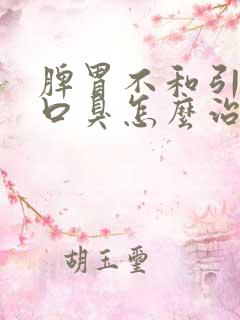 脾胃不和引
口臭怎麼治
胡玉璽